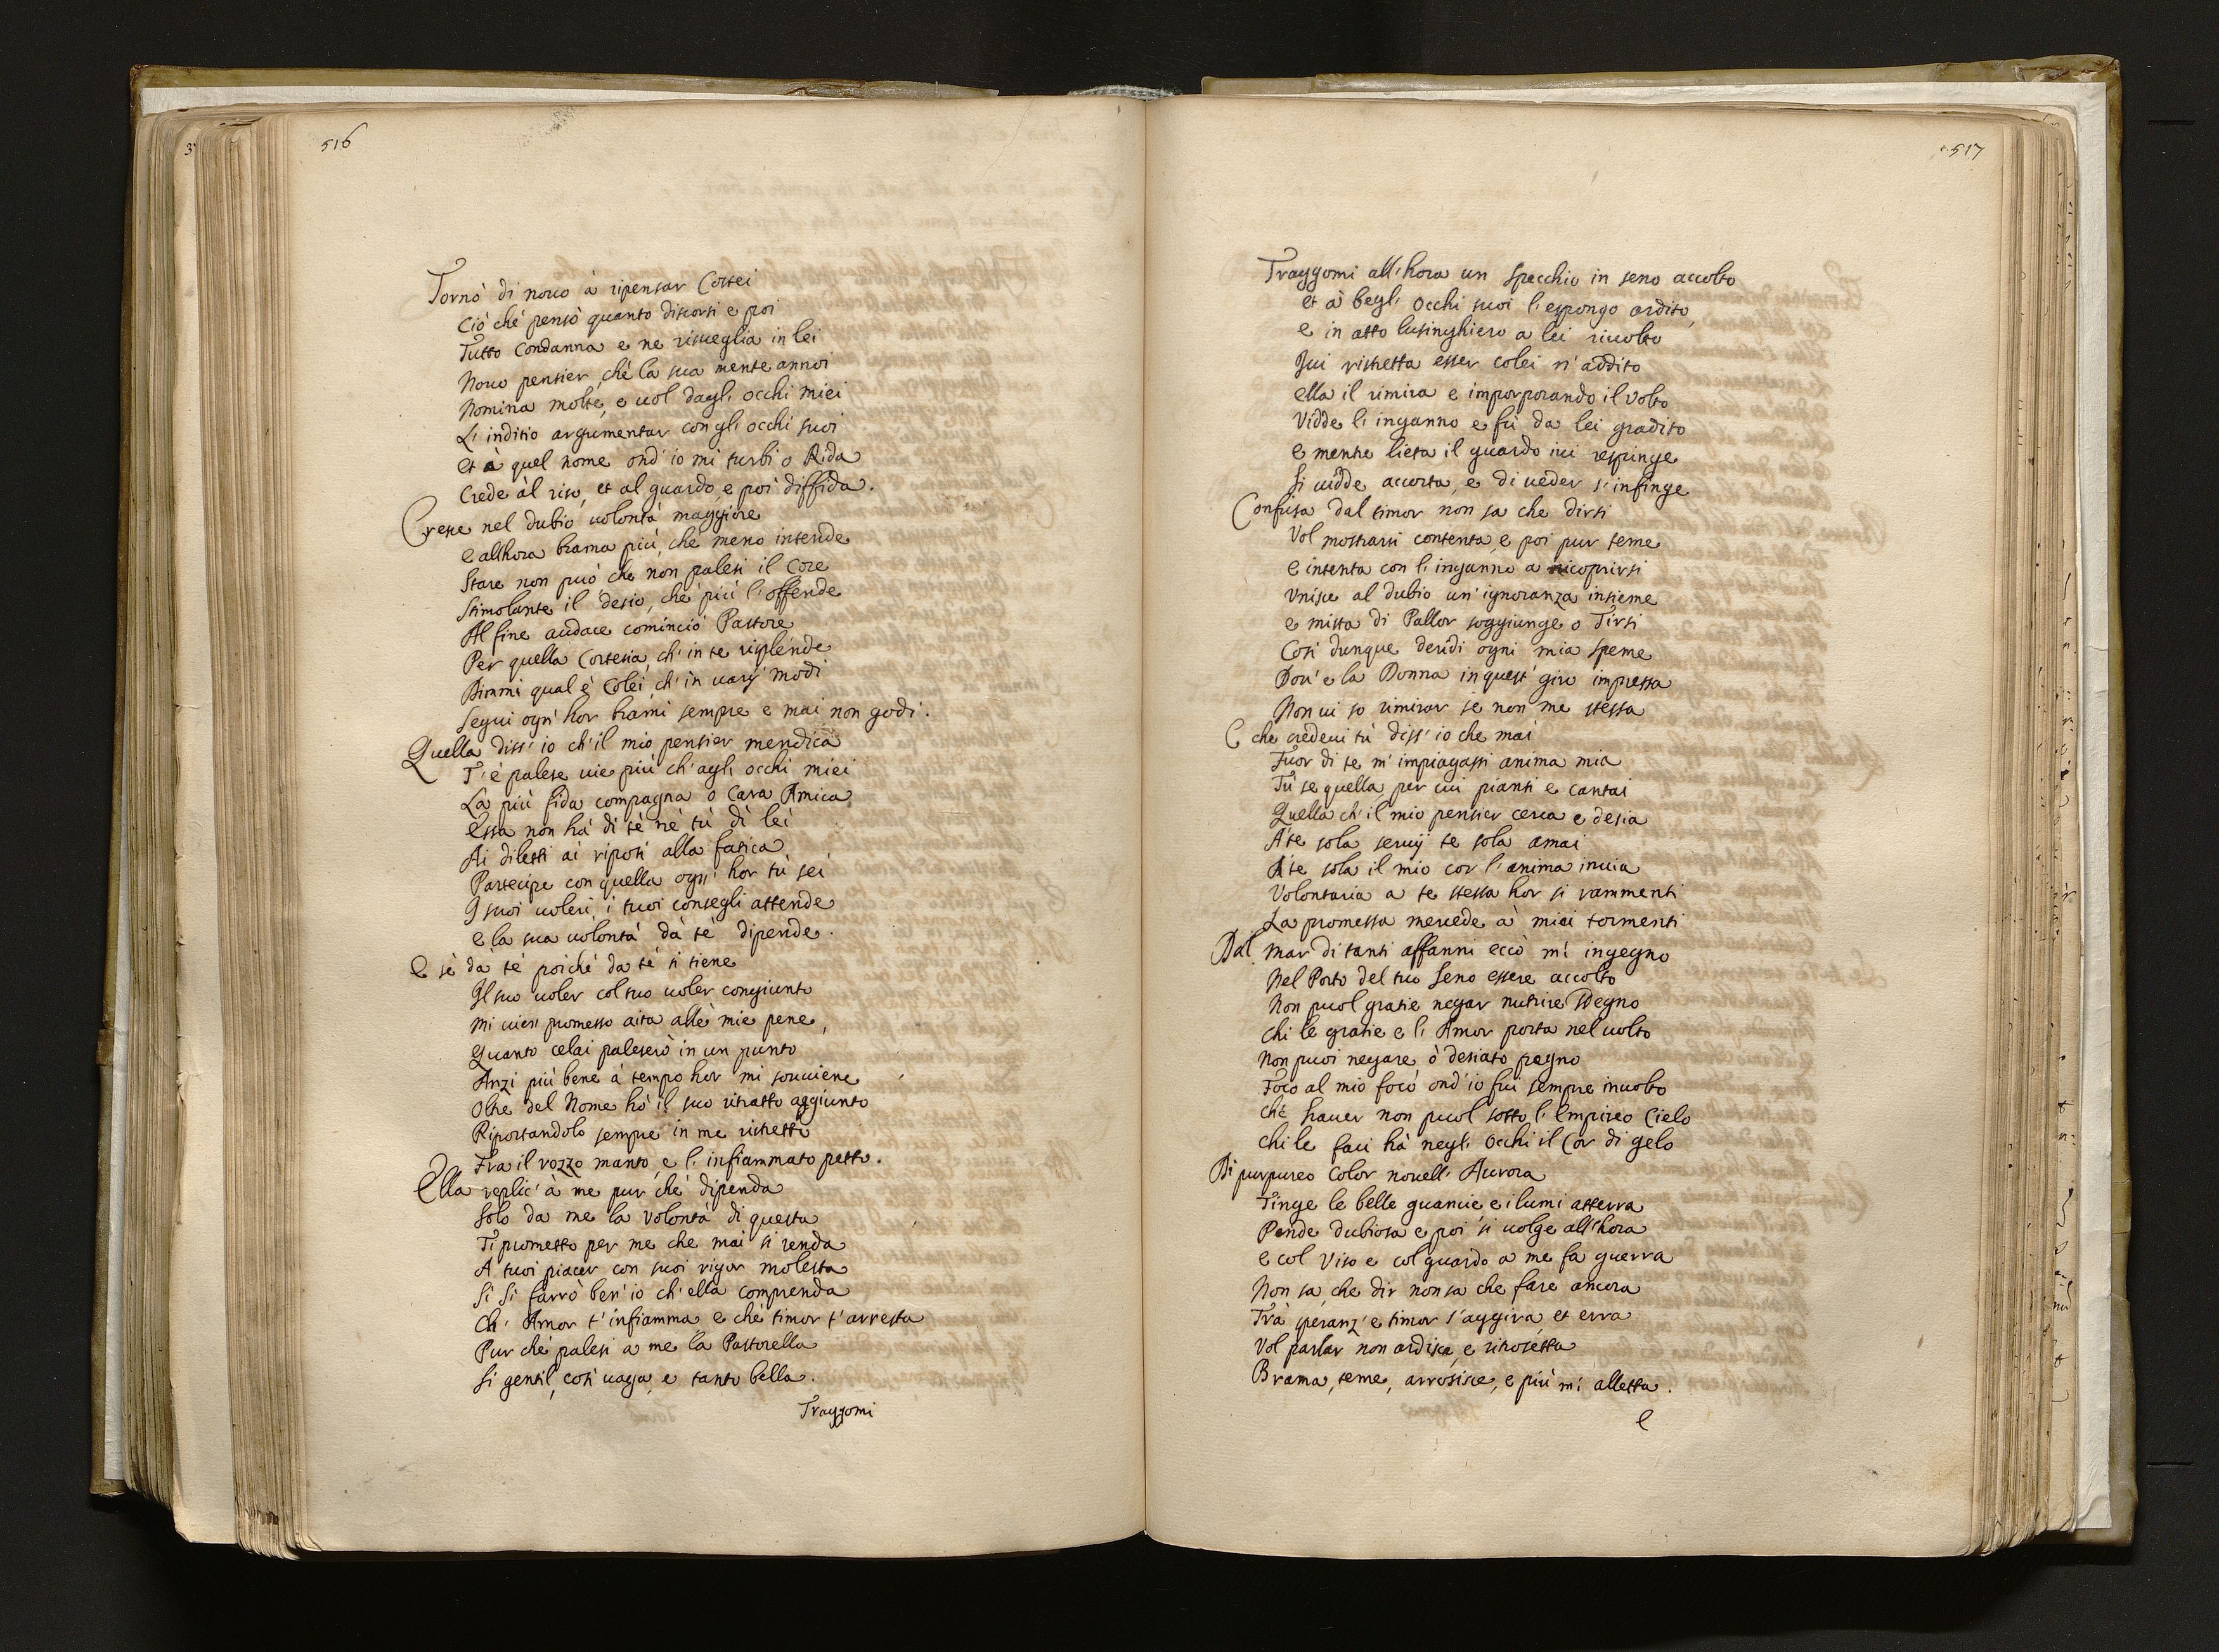 516
Tornò di novo à ripensar Costei
Ciò chè pensò quanto discorsi e poi
Tutto condanna e ne risveglia in lei
Novo pensier, chè la sua mente annoi
Nomina molte, e vol dagl' occhi miei
L' inditio argumentar con gl' occhi suoi
et à quel nome ond' io mi turbi o Rida
Crede àl riso, et al guardo, e poi diffida.
Cresce nel dubio volontà maggiore
e allhora brama più, chè meno intende
Stare non può che non palesi il Core
Stimolante il desio, chè più l' offende
Al fine audace cominciò Pastore
Per quella Cortesia, ch' in te risplende
Dimmi qual è Colei, ch' in varij modi
Segui ogn' hor brami sempre e mai non godi.
Quella diss' io ch' il mio pensier mendica
T' è palese vie più ch' agl' occhi miei
La più fida compagna o Cara Amica
Essa non hà di tè nè tù di lei
Ai diletti ai riposi alla fatica
Partecipe con quella ogn' hor tù sei
I suoi voleri, i tuoi consegli attende
e la sua volontà dà tè dipende.
E sè dà tè poichè da tè si tiene
Il suo voler col tuo voler congiunto
Mi vien promesso aita allè mie pene,
Quanto celai paleserò in un punto
Anzi più bene à tempo hor mi souviene
Oltre del Nome hò il suo ritratto aggiunto
Riportandolo sempre in me ristretto
Fra il rozzo manto, e l' infiammato petto.
Ella replic' à me pur chè dipenda
Solo da me la Volontà di questa
Ti prometto per me che mai si renda
A tuoi piacer con suoi rigor molesta
Si si farrò ben' io ch' ella comprenda
Ch' Amor t' infiamma e chè timor t' arresta
Pur chè palesi a me la Pastorella
Si gentil, cosi vaga, e tanto bella.
Traggomi
517
Traggomi all' hora un Specchio in seno accolto
et à begl' occhi suoi l' espongo ardito,
e in atto lusinghiero a lei rivolto
Ivi ristretta esser colei n' addito
ella il rimira e imporporando il Volto
Vidde l' inganno e fù da lei gradito
e mentre lieta il guardo ivi respinge
Si vidde accorta, e di veder s' infinge
Confusa dal timor non sa che dirsi
Vol mostrarsi contenta, e poi pur teme
e intenta con l' inganno a ricoprirsi
Unisce al dubio un' ignoranza insieme
e mista di Pallor soggiunge o Tirsi
Cosi dunque deridi ogni mia speme
Dov' e la Donna in quest' giro impressa
Non vi so rimirar se non me stessa
E che credevi tù diss' io che mai
Fuor di te m' impiagassi anima mia
Tù se quella, per cui piansi e cantai
Quella ch' il mio pensier cerca e desia
A te sola servij te sola amai
A te sola il mio cor l' anima invia
Volontaria a te stessa hor si rammenti
La promessa mercede à miei tormenti
Dal mar di tanti affanni eccò m' ingegno
Nel Porto del tuo Seno essere accolto
Non puol gratie negar nutrire sdegno
chi le gratie e l' Amor porta nel volto
Non puoi negare ò desiato pegno
Foco al mio focò ond' io fui sempre involto
chè haver non puol sotto l' Empireo Cielo
chi le faci hà negl' Occhi il Cor di gelo
Di purpureo Color novell' Aurora
Tinge le belle guancie e i lumi atterra
Pende dubiosa e poi si volge all' hora
e col Viso e col guardo a me fa guerra
Non sa, che dir non sa che fare ancora
Trà speranz' e timor s' aggira, et erra
Vol parlar non ardisce, e ritrosetta
Brama, teme, arrosisce, e più m' alletta.
E